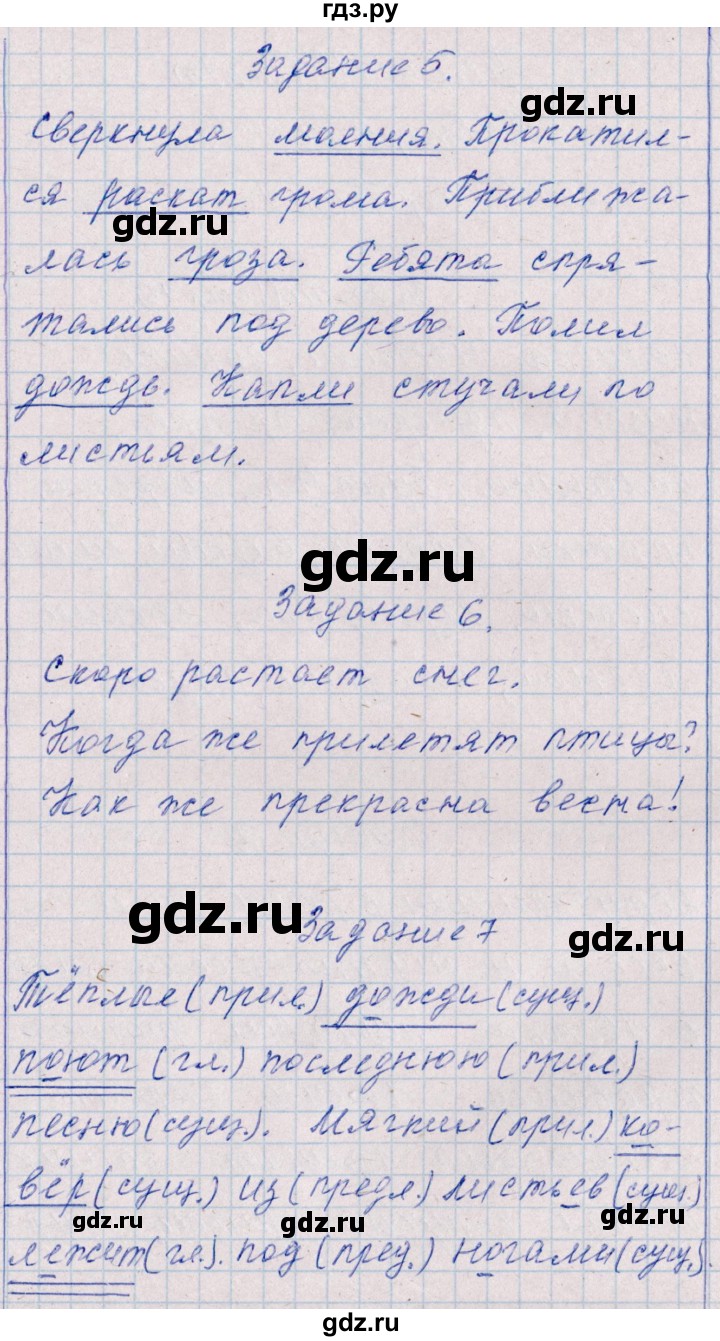 гдз.ру
Задание 5.
gdz.ru
Сверкнула молния. Прокатил-
ся раскат грома. Приближа-
gdz.ru
gdz.ru
лась гроза. Ребята спря-
тались под дерево. Полил
дождь. Капли стучали по
листьям.
gdz.ru
Задание 6.
Скоро растает снег.
Когда же прилетят птицы?
Как же прекрасна весна!
gdz.ru
Задание 7
gdz.ru
Тёплые (прил.) дожди (сущ.)
поют (гл.) последнюю (прил.)
песню (сущ.). Мягкий (прил.) ко-
вёр (сущ.) из (предл.) листьев (сущ.)
gdz.ru
gdz.ru
лежит (гл.). под (пред.) ногами (сущ.).
gdz.ru